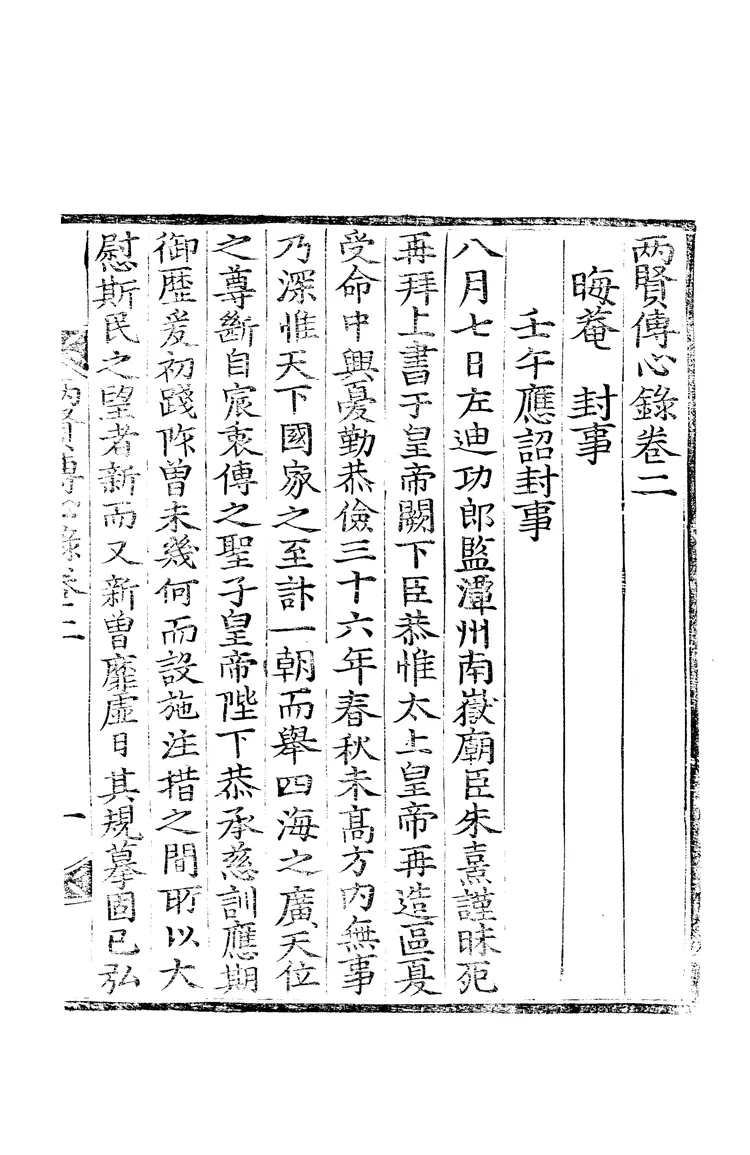 两賢傳心錄卷二
晦菴　封事
壬午應詔封事
八月七日左迪功郎監潭州南嶽廟臣朱熹謹昧死
再拜上書于皇帝闕下臣恭惟太上皇帝再造區夏
受命中興憂勤恭儉三十六年春秋未高方内無事
乃深惟天下國家之至計一朝而舉四海之廣天位
之尊斷自宸衷傳之聖子皇帝陛下恭承慈訓應期
御歷爰初踐阼曾未幾何而設施注措之間所以大
慰斯民之望者新而又新曾靡虛日其規摹固已弘
两賢傳心錄卷二　一